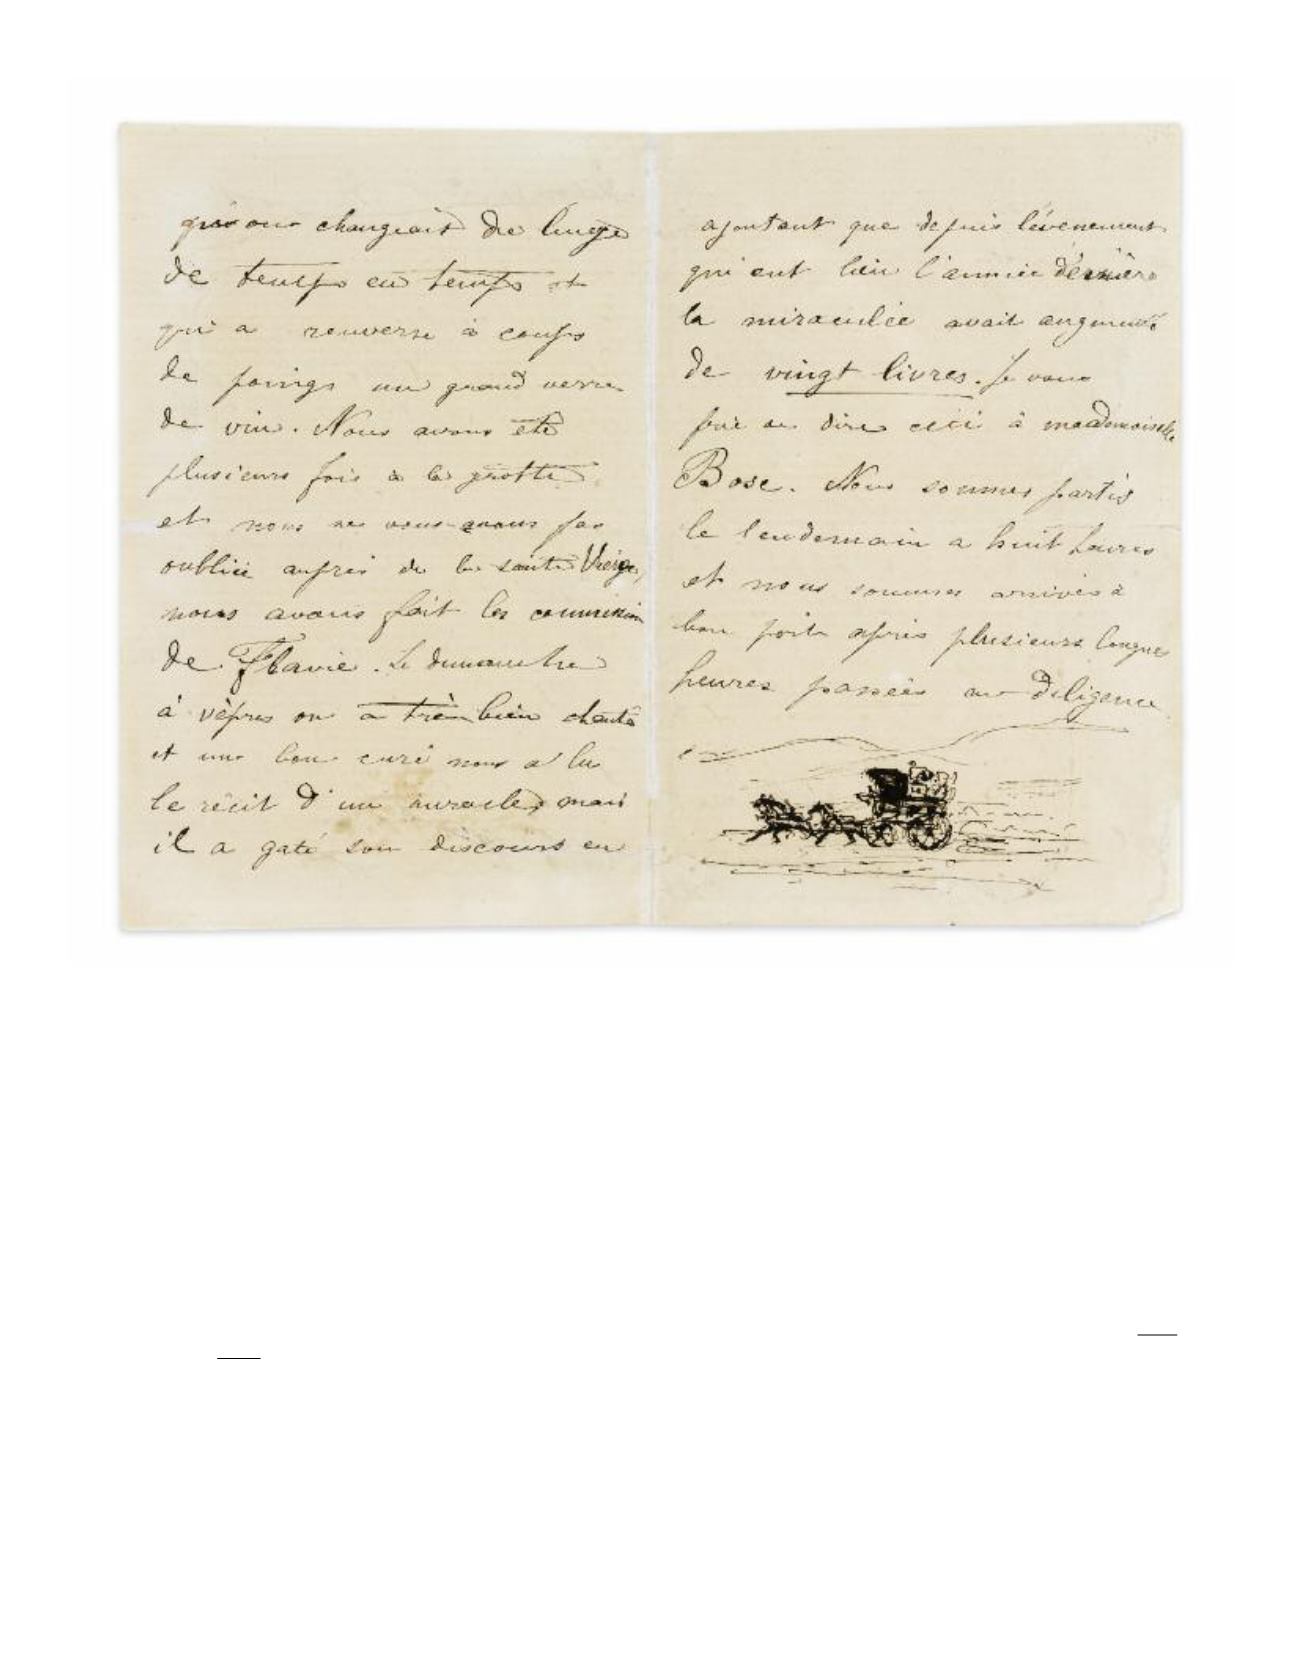 qu'on changeait de linge
de temps en temps et
qui a renversé à coups
de poings un grand verre
de vin. Nous avons été
plusieurs fois à la grotte
et nous ne vous avons pas
oubliée auprès de la sainte Vierge,
nous avons fait les commissions
de Flavie. Le dimanche
à vèpres on a très bien chanté
et un bon curé nous a lu
le récit d'un miracle, mais
il a gaté son discours en
ajoutant que depuis l'évenement
qui eut lieu l'année dernière
la miraculée avait augmenté
de vingt livres. Je vous
prie de dire ceci à mademoiselle
Bosc. Nous sommes partis
le lendemain a huit heures
et nous sommes arrivés à
bon port après plusieurs longues
heures passées en diligence